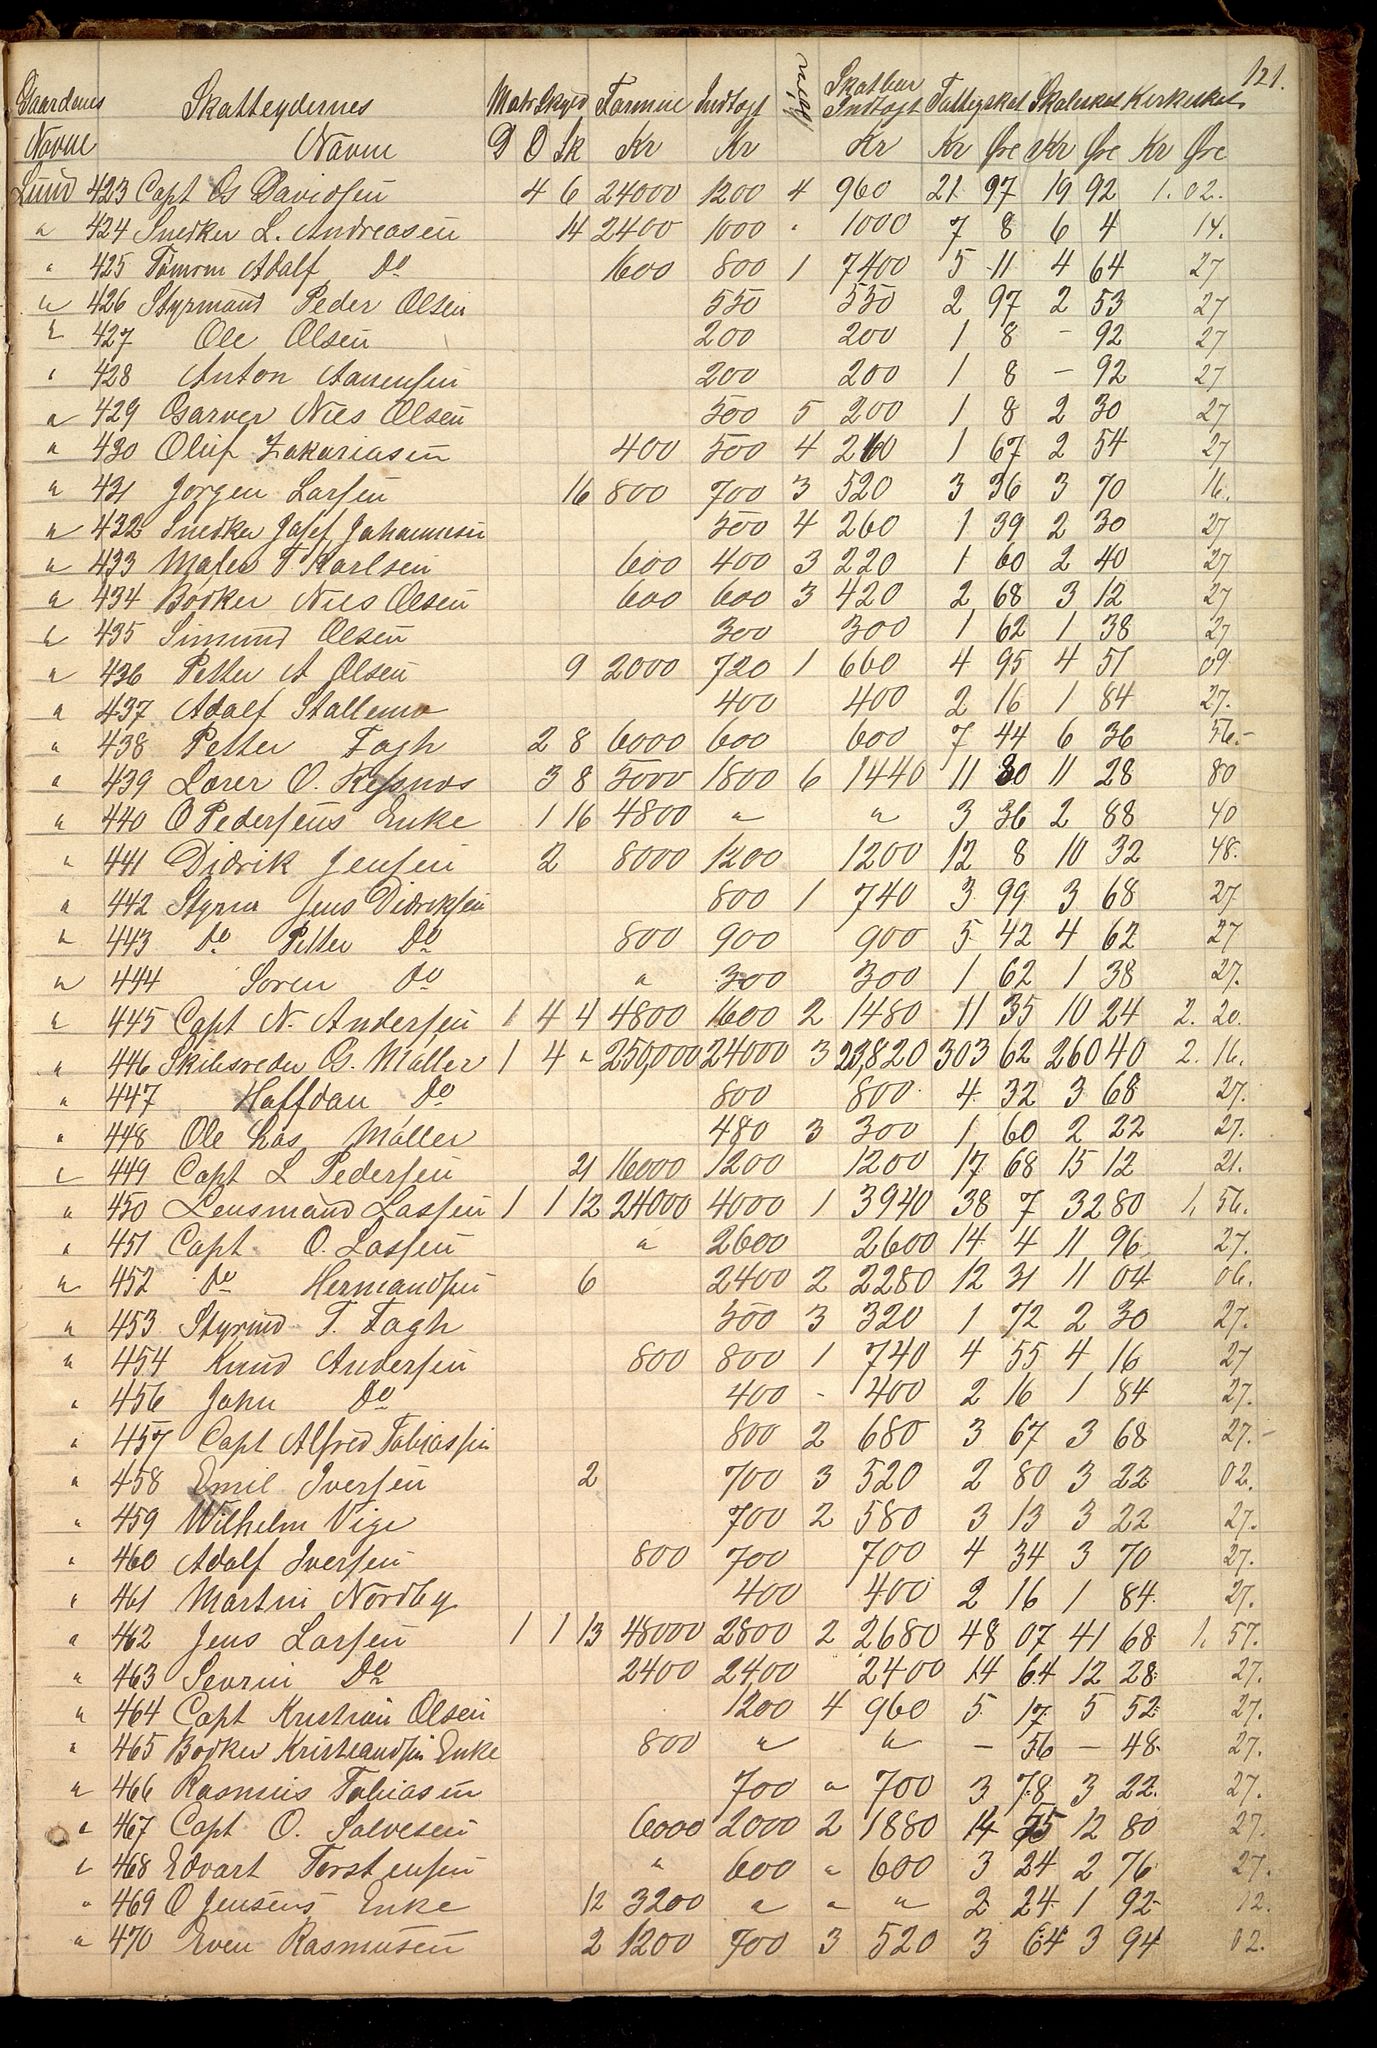 121.
Gaardenes Skatteydernes Matr Skyld Formue Indtægt Skatbar Indtægt Fattigskat Skoleskat Kirkeskat
Navne Navne D O Sk Kr Kr Kr Kr Øre Kr Øre Kr Øre
Lund 423 Capt G Davidsen 4 6 24000 1200 4 960 21 97 19 92 1. 02.
" 424 Snedker L. Andreasen 14 2400 1000 " 1000 7 8 6 4 14.
" 425 Tømrm Adolf Do 1600 800 1 7400 5 11 4 64 27
" 426 Styrmand Peder Olsen 550 550 2 97 2 53 27
" 427 Ole Olsen 200 200 1 8 - 92 27
" 428 Anton Aanensen 200 200 1 8 - 92 27
" 429 Garver Nils Olsen 500 5 200 1 8 2 30 27
" 430 Oluf Zakariasen 400 500 4 260 1 67 2 54 27
" 431 Jørgen Larsen 16 800 700 3 520 3 36 3 70 16.
" 432 Snedker Josef Johannesen 500 4 260 1 39 2 30 27
" 433 Maler T Karlsen 600 400 3 220 1 60 2 40 27
" 434 Bødker Nils Olsen 600 600 3 420 2 68 3 12 27
" 435 Simund Olsen 300 300 1 62 1 38 27
" 436 Petter A Olsen 9 2000 720 1 660 4 95 4 51 09
" 437 Adolf Stallemo 400 400 2 16 1 84 27.
" 438 Petter Fogh 2 8 6000 600 600 7 44 6 36 56.-
" 439 Lærer O. 3 8 5000 1800 6 1440 11 80 11 28 80
" 440 O Pedersens Enke 1 16 4800 " " 3 36 2 88 40
" 441 Didrik Jensen 2 8000 1200 1200 12 8 10 32 48.
" 442 Styrm Jens Didriksen 800 1 740 3 99 3 68 27
" 443 do Petter Do 800 900 900 5 42 4 62 27
" 444 Soren Do " 300 300 1 62 1 38 27.
" 445 Capt N. Andersen 1 4 4 4800 1600 2 1480 11 35 10 24 2. 20.
" 446 Skibsreder G. Møller 1 4 " 250,000 24000 3 23,820 303 62 260 40 2. 16.
" 447 Halfdan Do 800 800 4 32 3 68 27.
" 448 Ole Las Møller 480 3 300 1 60 2 22 27.
" 449 Capt L Pedersen 21 16000 1200 1200 17 68 15 12 21.
" 450 Lensmand Lassen 1 1 12 24000 4000 1 3940 38 7 32 80 1. 56.
" 451 Capt O. Lassen " 2600 2600 14 4 11 96 27.
" 452 do Hermandsen 6 2400 2 2280 12 31 11 04 06.
" 453 Styrmd T. Fogh 500 3 320 1 72 2 30 27.
" 454 Knud Andersen 800 800 1 740 4 55 4 16 27
" 456 John Do 400 - 400 2 16 1 84 27.
" 457 Capt Alfred Tobiassen 800 2 680 3 67 3 68 27.-
" 458 Emil Iversen 2 700 3 520 2 80 3 22 02.
" 459 Wilhelm Vige 700 2 580 3 13 3 22 27.
" 460 Adolf Iversen 800 700 700 4 34 3 70 27.
" 461 Martin Nordby 400 400 2 16 1 84. 27.
" 462 Jens Larsen 1 1 13 48000 2800 2 2680 48 07 41 68 1. 57.
" 463 Sevrin Do 2400 2400 2400 14 64 12 28. 27.
" 464 Capt Kristian Olsen 1200 4 960 5 17 5 52 27.
" 465 Bødker Kristiandsen Enke 800 " " - 56 - 48. 27.
" 466 Rasmus Tobiasen 700 " 700 3 78 3 22. 27.
" 467 Capt O. Salvesen 6000 2000 2 1880 14 55 12 80 27.
" 468 Edvart Torstensen " 600 " 600 3 24 2 76 27.
" 469 O Jensens Enke 12 3200 " " " 2 24 1 92 12.
" 470 Even Rasmusen 2 1200 700 3 520 3 64 3 94 02.